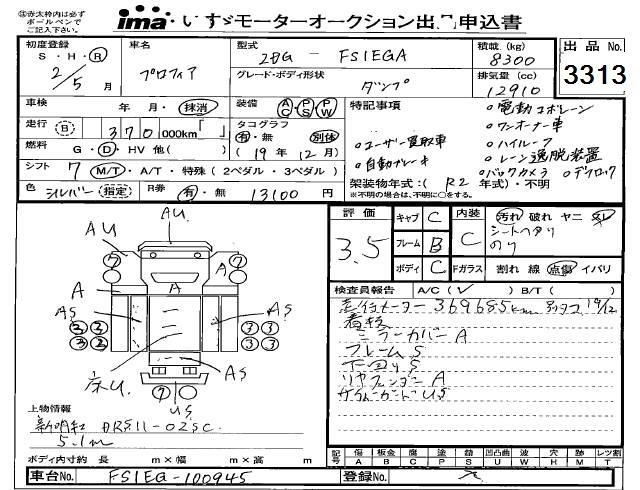 ㊟赤太枠内は必ず
ボールペンで
ご記入下さい。
ima・いすゞモーターオークション出品申込書
初度登録
S・H・R
2/5 月
車名
プロフィア
型式
2DG - FS1EGA
グレード・ボディ形状
ダンプ
積載 (kg)
8300
排気量 (cc)
12910
出品 No.
3313
車検 年 月・抹消
装備 AC PS PW
特記事項
走行 (B) 370,000km「 」
タコグラフ
有・無 別体
(19年 12月)
燃料 G・D・HV 他( )
シフト 7 M/T・A/T・特殊 (2ペダル・3ペダル)
色 シルバー (指定) R券 有・無 13100 円
。電動コボレーン
。ワンオーナー車
。ユーザー買取車
。ハイルーフ
。自動ブレーキ
。レーン逸脱装置
。バックカメラ
。デフロック
架装物年式:( R2 年式)・不明
※不明の場合は、不明に○をする。
評価
3.5
キャブ C
フレーム B
ボディ C
内装 C
汚れ 破れ ヤニ
シートヘタリ
のり
Fガラス 割れ 線 点傷 イバリ
検査員報告 A/C(✓) B/T( )
走行メーター 369685km 別タコ 19/12
看板
ミラーカバー A
フレーム S
下回り S
リヤフェンダー A
サイドガード US
AU
AU.
A
A
AS
AS
AS
床U.
US
上物情報
新明和 DRS11-02SC
5.1m
ボディ内寸約 長 m×幅 m×高 m
記号 傷 A 板金 B 腐 C 塗 P サビ S 凹凸曲 U 波 W 穴 H 跡 M レツ割 T
車台No. FS1EG-100945
登録No.